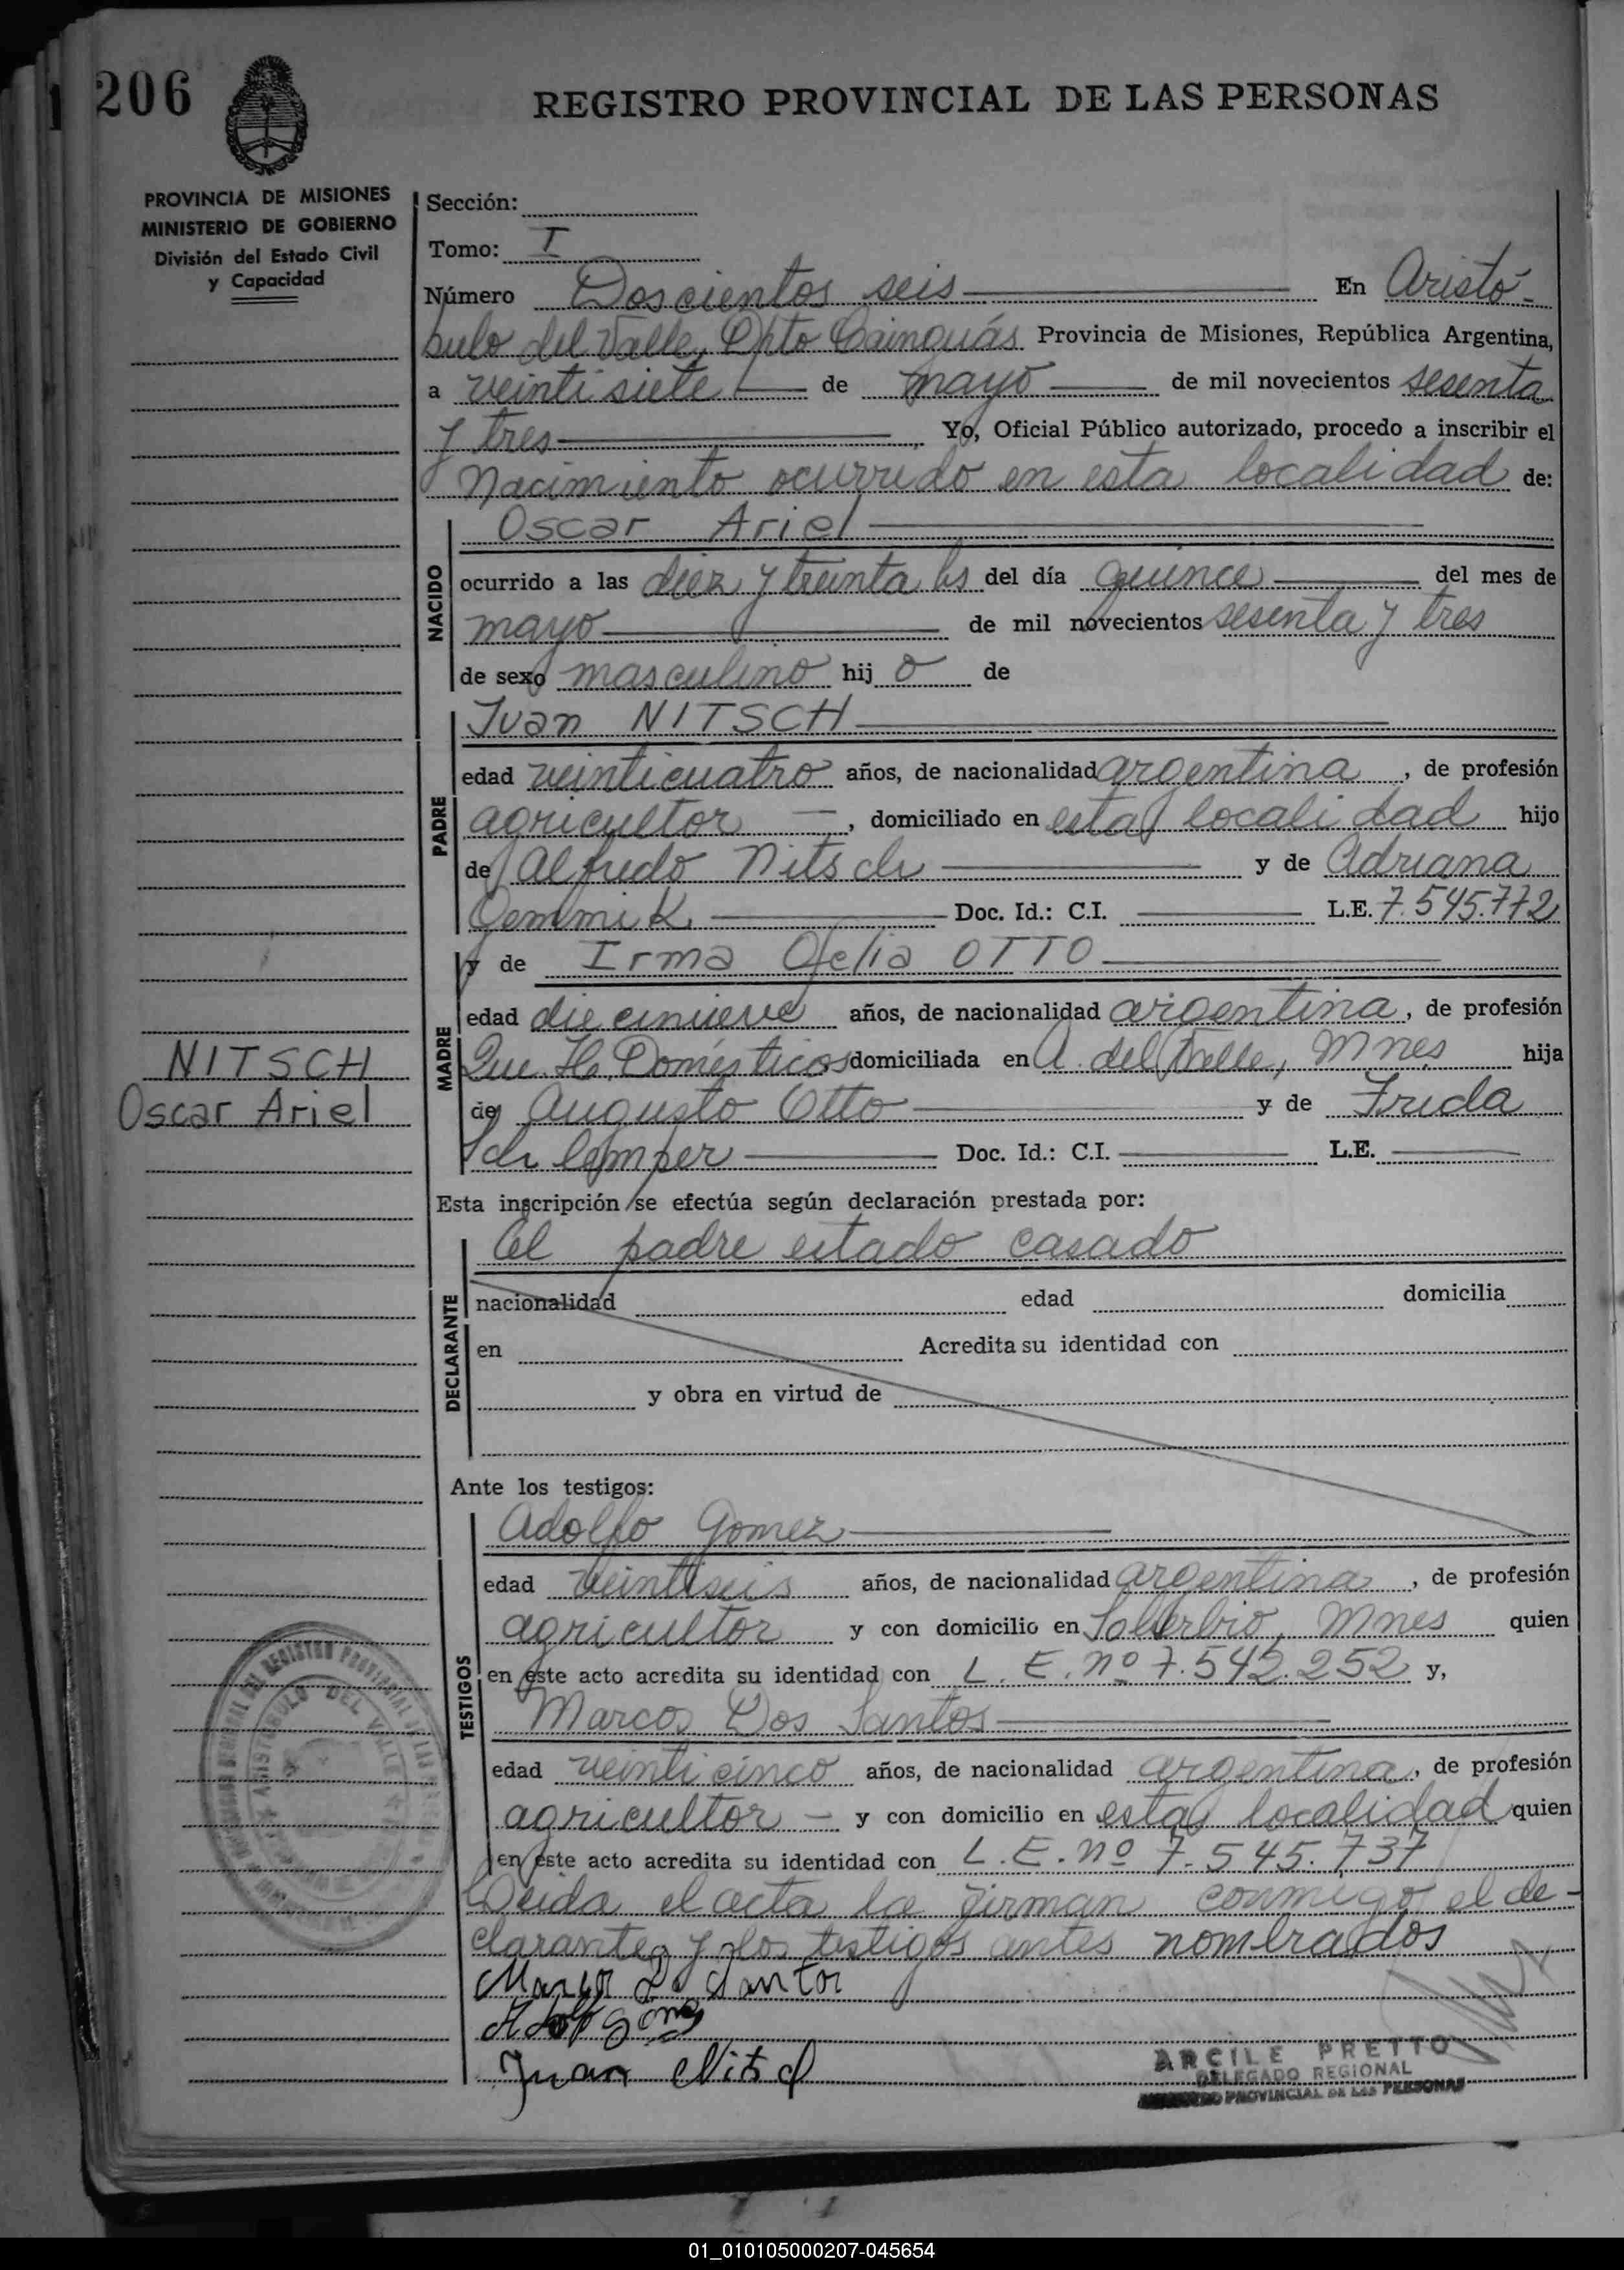 206
REGISTRO PROVINCIAL DE LAS PERSONAS
PROVINCIA DE MISIONES
MINISTERIO DE GOBIERNO
División del Estado Civil
y Capacidad
Sección:
Tomo: I
Número Doscientos seis En Aristó-
bulo del Valle, Dpto Cainguás Provincia de Misiones, República Argentina,
a veintisiete de mayo de mil novecientos sesenta
y tres Yo, Oficial Público autorizado, procedo a inscribir el
Nacimiento ocurrido en esta localidad de:
NACIDO
Oscar Ariel
ocurrido a las diez y treinta hs del día quince del mes de
mayo de mil novecientos sesenta y tres
de sexo masculino hij o de
PADRE
Juan NITSCH
edad veinticuatro años, de nacionalidad argentina, de profesión
agricultor, domiciliado en esta localidad hijo
de Alfredo Nitsch y de Adriana
Doc. Id.: C.I. L.E. 7.545.772
MADRE
y de Irma Ofelia OTTO
edad diecinueve años, de nacionalidad argentina, de profesión
Que. H. Domésticos domiciliada en A. del Valle, Mnes hija
de Augusto Otto y de Frida
Doc. Id.: C.I. L.E.
NITSCH
Oscar Ariel
Esta inscripción se efectúa según declaración prestada por:
DECLARANTE
El padre estado casado
nacionalidad edad domicilia
en Acredita su identidad con
y obra en virtud de
Ante los testigos:
TESTIGOS
Adolfo Gomez
edad veintiseis años, de nacionalidad argentina, de profesión
agricultor y con domicilio en Mnes quien
en este acto acredita su identidad con L.E. nº 7.542.252 y,
Marcos Dos Santos
edad veinticinco años, de nacionalidad argentina, de profesión
agricultor y con domicilio en esta localidad quien
en este acto acredita su identidad con L.E. nº 7.545.737
Leida el acta la firman conmigo el de-
clarante y los testigos antes nombrados
Juan Nitsch
ARISTOBULO DEL VALLE
ARCILE PRETTO
DELEGADO REGIONAL
PROVINCIAL DE LAS PERSONAS
01_010105000207-045654